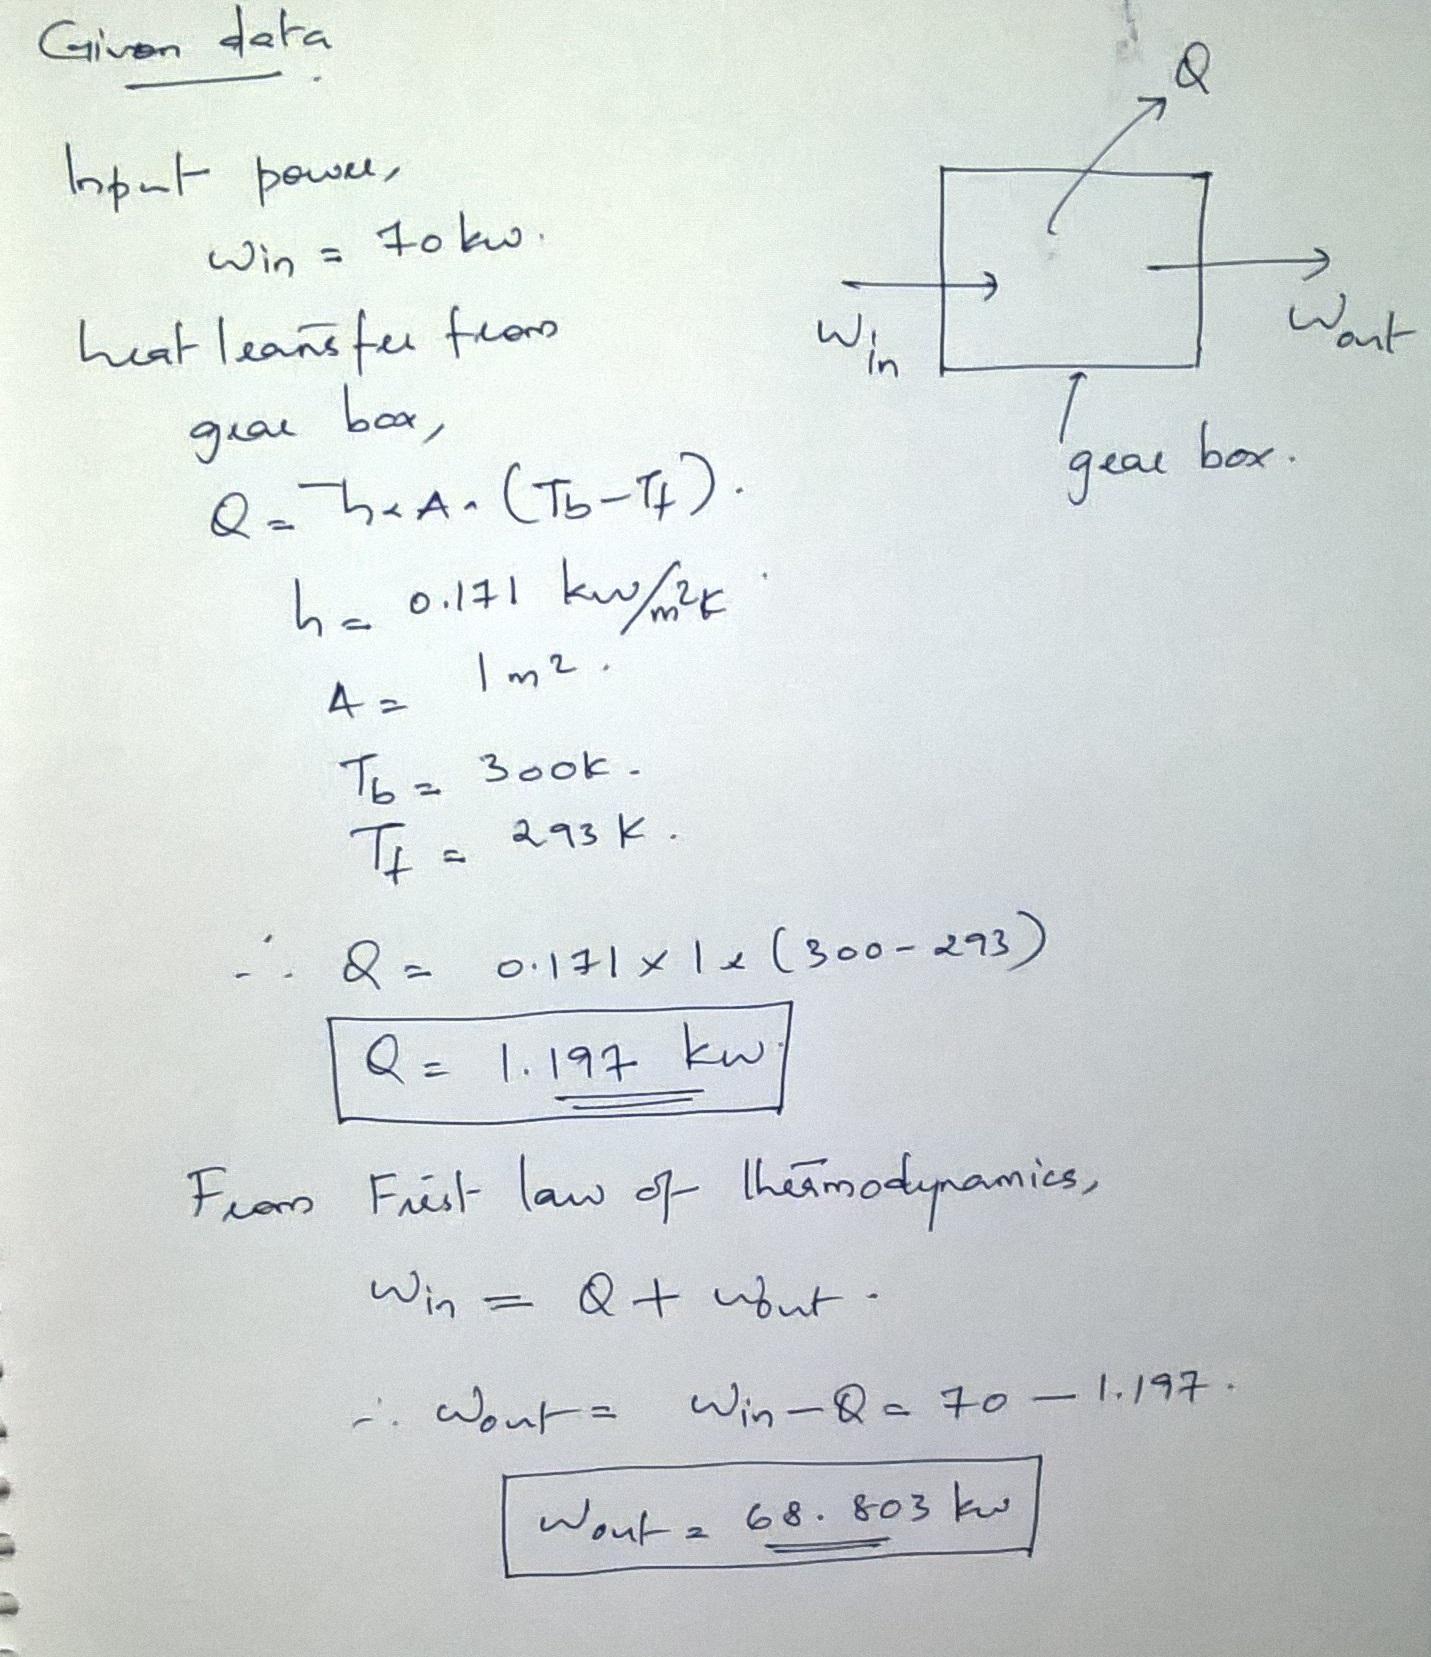 Given data.
Q
Input power,
Win = 70 kw.
Win
Wout
heat transfer from
gear box,
gear box.
Q = h × A × (Tb - Tf).
h = 0.171 kw/m²K
A = 1m².
Tb = 300K.
Tf = 293 K.
∴ Q = 0.171 × 1 × (300 - 293)
Q = 1.197 kw.
From First law of thermodynamics,
Win = Q + Wout.
∴ Wout = Win - Q = 70 - 1.197.
Wout = 68.803 kw